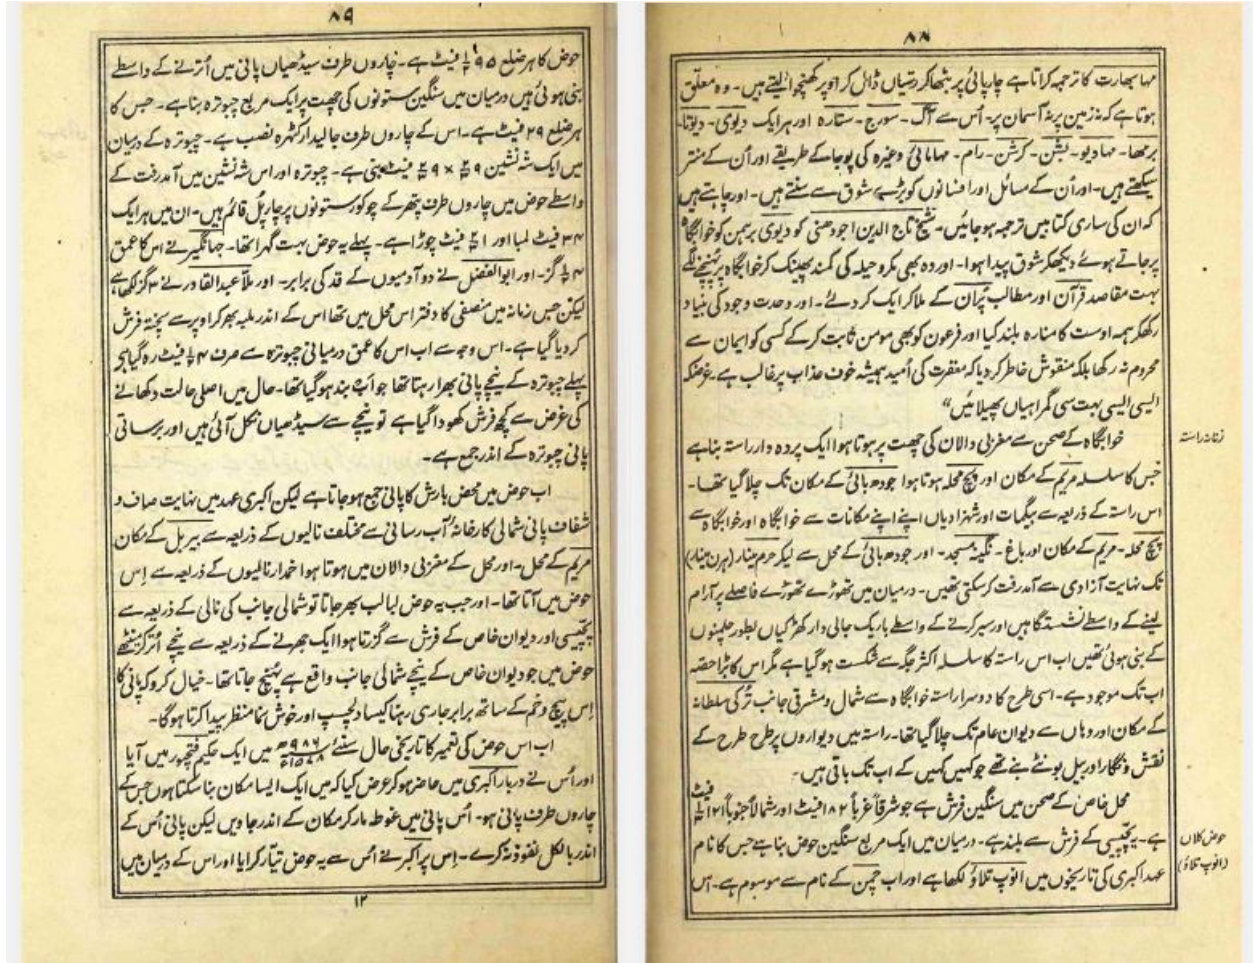 ۸۸
مہا بھارت کا ترجمہ کراتا ہے چارپائی پر بٹھا کر رسیاں ڈال کر اوپر کھنچوا لیتے ہیں۔ وہ معلّق
ہوتا ہے کہ نہ زمین پر نہ آسمان پر۔ اُس سے آگ۔ سورج۔ ستارہ اور ہر ایک دیوی۔ دیوتا۔
برمھا۔ مہادیو۔ بشن۔ کرشن۔ رام۔ مہامائی وغیرہ کی پوجا کے طریقے اور اُن کے منتر
سیکھتے ہیں۔ اور اُن کے مسائل اور افسانوں کو بڑے شوق سے سنتے ہیں۔ اور چاہتے ہیں
کہ ان کی ساری کتابیں ترجمہ ہو جائیں۔ شیخ تاج الدین اجودھنی کو دیوی برہمن کو خوابگاہ
پر جاتے ہوئے دیکھکر شوق پیدا ہوا۔ اور وہ بھی مکر و حیلہ کی کمند پھینک کر خوابگاہ پر پہنچنے لگے
بہت مقاصد قرآن اور مطالب پُران کے ملا کر ایک کر دئے۔ اور وحدت وجود کی بنیاد
رکھکر ہمہ اوست کا منارہ بلند کیا اور فرعون کو بھی مومن ثابت کر کے کسی کو ایمان سے
محروم نہ رکھا بلکہ منقوش خاطر کر دیا کہ مغفرت کی اُمید ہمیشہ خوف عذاب پر غالب ہے۔ غرضکہ
ایسی ایسی بہت سی گمراہیاں پھیلائیں“
خوابگاہ کے صحن سے مغربی دالان کی چھت پر ہوتا ہوا ایک پردہ دار راستہ بنا ہے
زنانہ راستہ
جس کا سلسلہ مریم کے مکان اور پنچ محلہ ہوتا ہوا جودھ بائی کے مکان تک چلا گیا تھا۔
اس راستہ کے ذریعہ سے بیگمات اور شہزادیاں اپنے اپنے مکانات سے خوابگاہ اور خوابگاہ سے
پنچ محلہ۔ مریم کے مکان اور باغ۔ نگینہ مسجد۔ اور جودھ بائی کے محل سے لیکر حرم مینار (ہرن مینار)
تک نہایت آزادی سے آمد رفت کر سکتی تھیں۔ درمیان میں تھوڑے تھوڑے فاصلے پر آرام
لینے کے واسطے نشستگاہیں اور سیر کرنے کے واسطے باریک جالی دار کھڑکیاں بطور چلمنوں
کے بنی ہوئی تھیں اب اس راستہ کا سلسلہ اکثر جگہ سے شکست ہو گیا ہے مگر اس کا بڑا حصّہ
اب تک موجود ہے۔ اسی طرح کا دوسرا راستہ خوابگاہ سے شمال و مشرقی جانب تُرکی سلطانہ
کے مکان اور وہاں سے دیوان عام تک چلا گیا تھا۔ راستہ میں دیواروں پر طرح طرح کے
نقش و نگار اور بیل بوٹے بنے تھے جو کہیں کہیں کے اب تک باقی ہیں۔
محل خاص کے صحن میں سنگین فرش ہے جو شرقاً غرباً ۱۸۲ فیٹ اور شمالاً جنوباً فیٹ
ہے۔ یہ پچیسی کے فرش سے بلند ہے۔ درمیان میں ایک مربع سنگین حوض بنا ہے جس کا نام
حوض کلاں
(انوپ تلاؤ)
عہد اکبری کی تاریخوں میں انوپ تلاؤ لکھا ہے اور اب چمن کے نام سے موسوم ہے۔ اس
۸۹
حوض کا ہر ضلع ۹۵ ½ فیٹ ہے۔ چاروں طرف سیڈھیاں پانی میں اُترنے کے واسطے
بنی ہوئی ہیں درمیان میں سنگین ستونوں کی چھت پر ایک مربع چبوترہ بنا ہے۔ جس کا
ہر ضلع ۲۹ فیٹ ہے۔ اس کے چاروں طرف جالیدار کٹہرہ نصب ہے۔ چبوترہ کے درمیان
میں ایک شہ نشین فیٹ بنی ہے۔ چبوترہ اور اس شہ نشین میں آمد رفت کے
واسطے حوض میں چاروں طرف پتھر کے چوکور ستونوں پر چار پُل قائم ہیں۔ ان میں ہر ایک
۳۴ فیٹ لمبا اور فیٹ چوڑا ہے۔ پہلے یہ حوض بہت گہرا تھا۔ جہانگیر نے اس کا عمق
۴ ½ گز۔ اور ابوالفضل نے دو آدمیوں کے قد کی برابر۔ اور ملّا عبدالقادر نے ۳ گز لکھا ہے
لیکن جس زمانہ میں منصفی کا دفتر اس محل میں تھا اس کے اندر ملبہ بھر کر اوپر سے پختہ فرش
کر دیا گیا ہے۔ اس وجہ سے اب اس کا عمق درمیانی چبوترہ سے صرف ۴ فیٹ رہ گیا ہے
پہلے چبوترہ کے نیچے پانی بھرا رہتا تھا جو اب بند ہو گیا تھا۔ حال میں اصلی حالت دکھانے
کی غرض سے کچھ فرش کھودا گیا ہے تو نیچے سے سیڈھیاں نکل آئی ہیں اور برساتی
پانی چبوترہ کے اندر جمع ہے۔
اب حوض میں محض بارش کا پانی جمع ہو جاتا ہے لیکن اکبری عہد میں نہایت صاف و
شفاف پانی شمالی کارخانہ آب رسانی سے مختلف نالیوں کے ذریعہ سے بیربل کے مکان
مریم کے محل۔ اور محل کے مغربی دالان میں ہوتا ہوا خمدار نالیوں کے ذریعہ سے اِس
حوض میں آتا تھا۔ اور جب یہ حوض لبالب بھر جاتا تو شمالی جانب کی نالی کے ذریعہ سے
پچیسی اور دیوان خاص کے فرش سے گزرتا ہوا ایک جھرنے کے ذریعہ سے نیچے اُتر کر
حوض میں جو دیوان خاص کے نیچے شمالی جانب واقع ہے پہنچ جاتا تھا۔ خیال کرو کہ پانی کا
اِس پیچ و خم کے ساتھ برابر جاری رہنا کیسا دلچسپ اور خوش نما منظر پیدا کرتا ہوگا۔
اب اس حوض کی تعمیر کا تاریخی حال سنئے ۹۸۶ھ ۱۵۷۸ء میں ایک حکیم فتحپور میں آیا
اور اُس نے دربار اکبری میں حاضر ہو کر عرض کیا کہ میں ایک ایسا مکان بنا سکتا ہوں جس کے
چاروں طرف پانی ہو۔ اُس پانی میں غوطہ مار کر مکان کے اندر جاویں لیکن پانی اُس کے
اندر بالکل نفوذ نہ کرے۔ اِس پر اکبر نے اُس سے یہ حوض تیار کرایا اور اس کے درمیان میں
۱۲